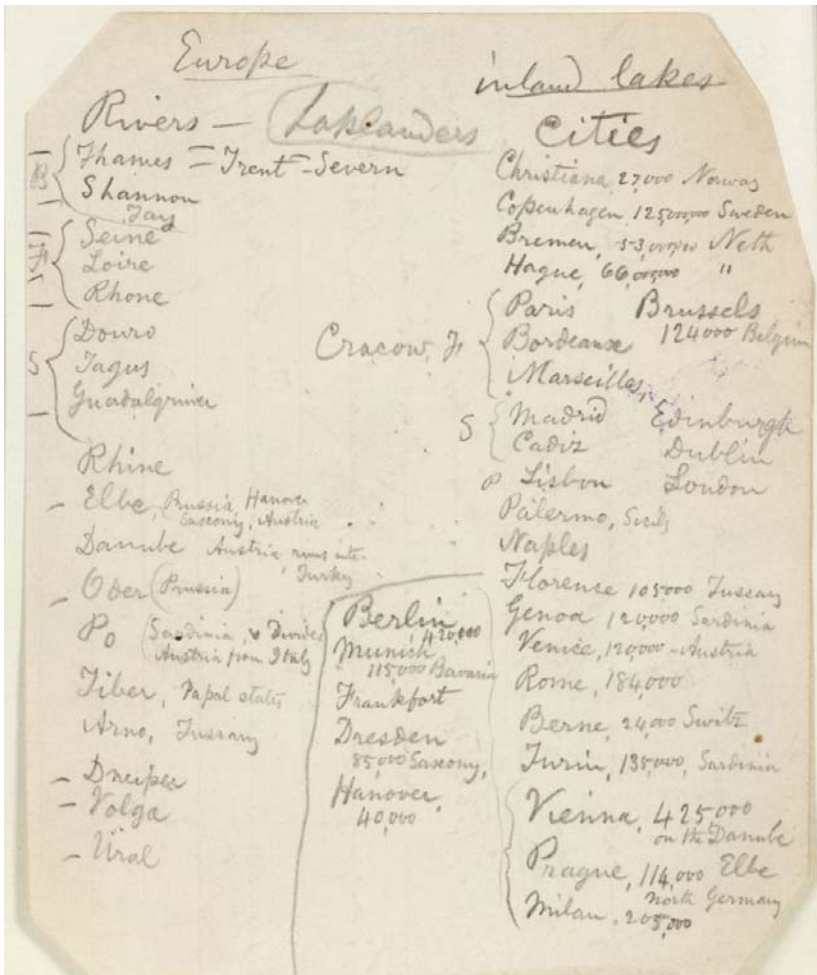 Europe
inland lakes
Rivers — Laplanders
Cities
B
Thames = Trent - Severn
Shannon
Tay
F
Seine
Loire
Rhone
S
Douro
Tagus
Guadalquiver
Rhine
- Elbe, Prussia, Hanover
Saxony, Austria
Danube Austria runs into
Turkey
- Oder (Prussia)
Po (Sardinia, & Divides
Austria from Italy
Tiber, Papal states
Arno, Tussany
- Dneiper
- Volga
- Ural
Cracow,
Berlin
420,000
Munich
115,000 Bavaria
Frankfort
Dresden
85,000 Saxony,
Hanover,
40,000
Christiana, 27,000 Norway
Copenhagen, 125,000,000 Sweden
Bremen, 53,000,000 Neth
Hague, 66,000,000 "
F
Paris Brussels
Bordeaux 124000 Belgium
Marseilles,
S
Madrid Edinburgh
Cadiz Dublin
P Lisbon London
Palermo, Sicily
Naples
Florence 105000 Tussany
Genoa 120,000 Sardinia
Venice, 120,000 - Austria
Rome, 184,000
Berne, 24,000 Switz
Turin, 135,000, Sardinia
Vienna, 425,000
on the Danube
Prague, 114,000 Elbe
North Germany
Milan, 205,000